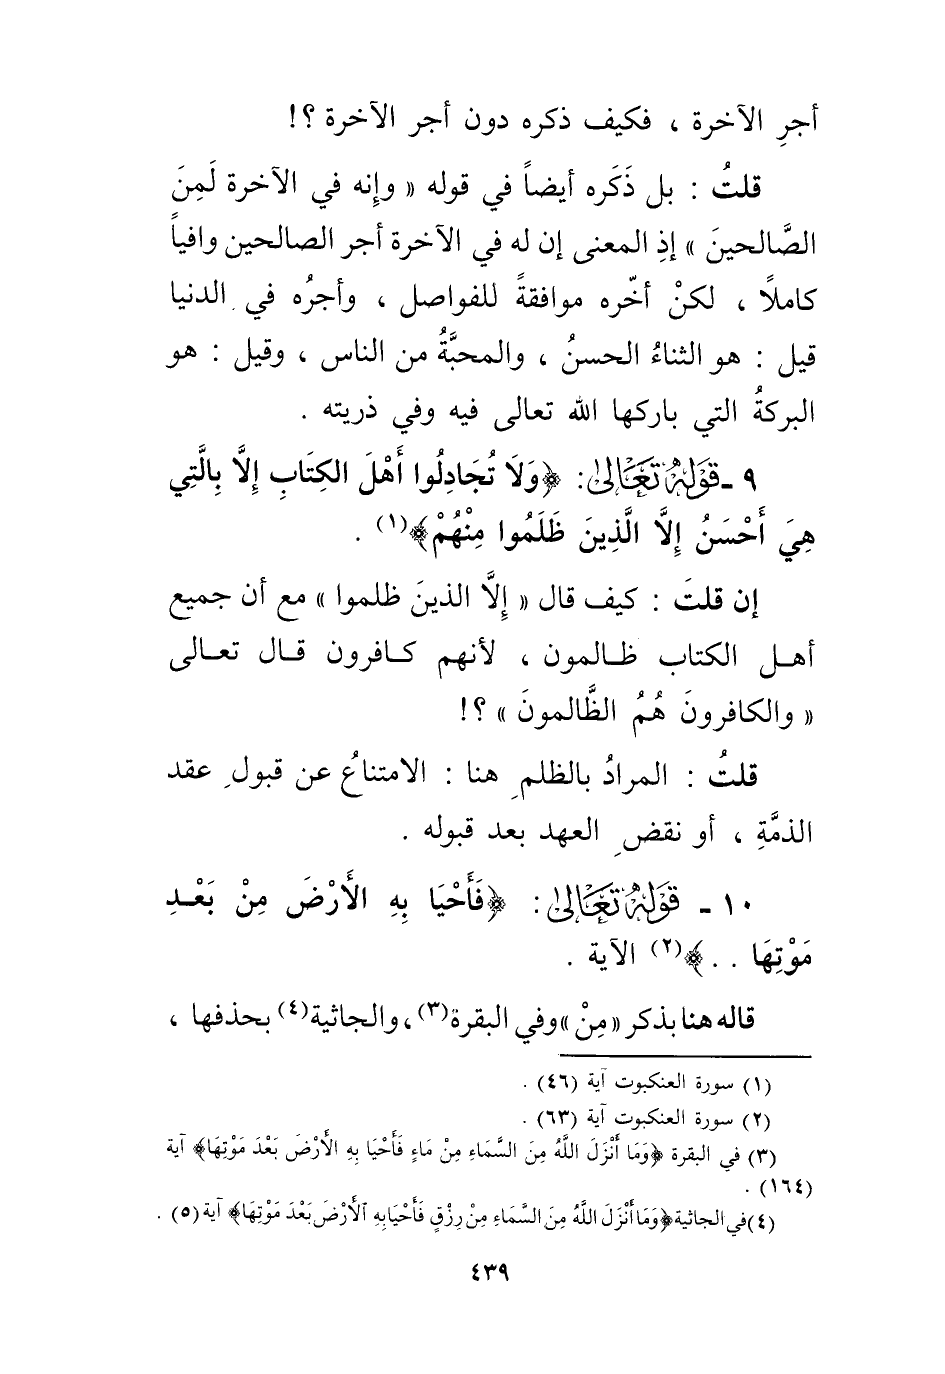 أجرِ الآخرة ، فكيف ذكره دون أجر الآخرة ؟!
قلتُ : بل ذَكَره أيضاً في قوله « وإِنه في الآخرة لَمِنَ
الصَّالحينَ » إذِ المعنى إن له في الآخرة أجر الصالحين وافياً
كاملًا ، لكنْ أخّره موافقةً للفواصل ، وأجرُه في الدنيا
قيل : هو الثناءُ الحسنُ ، والمحبَّةُ من الناس ، وقيل : هو
البركةُ التي باركها الله تعالى فيه وفي ذريته .
٩ ـ قَوْلُهُ تَعَالىٰ : ﴿وَلَا تُجَادِلُوا أَهْلَ الكِتَابِ إِلَّا بِالَّتِي
هِيَ أَحْسَنُ إِلَّا الَّذِينَ ظَلَمُوا مِنْهُمْ﴾(١) .
إن قلتَ : كيف قال « إِلَّا الذينَ ظلموا » مع أن جميع
أهـل الكتاب ظـالمون ، لأنهم كـافرون قـال تعـالى
« والكافرونَ هُمُ الظَّالمونَ » ؟!
قلتُ : المرادُ بالظلمِ هنا : الامتناعُ عن قبولِ عقد
الذمَّةِ ، أو نقضِ العهد بعد قبوله .
١٠ ـ قَوْلُهُ تَعَالىٰ : ﴿فَأَحْيَا بِهِ الأَرْضَ مِنْ بَعْـدِ
مَوْتِهَا . .﴾(٢) الآية .
قاله هنا بذكر «مِنْ» وفي البقرة(٣)، والجاثية(٤) بحذفها ،
(١) سورة العنكبوت آية (٤٦) .
(٢) سورة العنكبوت آية (٦٣) .
(٣) في البقرة ﴿وَمَا أَنْزَلَ اللَّهُ مِنَ السَّمَاءِ مِنْ مَاءٍ فَأَحْيَا بِهِ الأَرْضَ بَعْدَ مَوْتِهَا﴾ آية
(١٦٤) .
(٤) في الجاثية ﴿وَمَا أَنْزَلَ اللَّهُ مِنَ السَّمَاءِ مِنْ رِزْقٍ فَأَحْيَا بِهِ الأَرْضَ بَعْدَ مَوْتِهَا﴾ آية (٥) .
٤٣٩